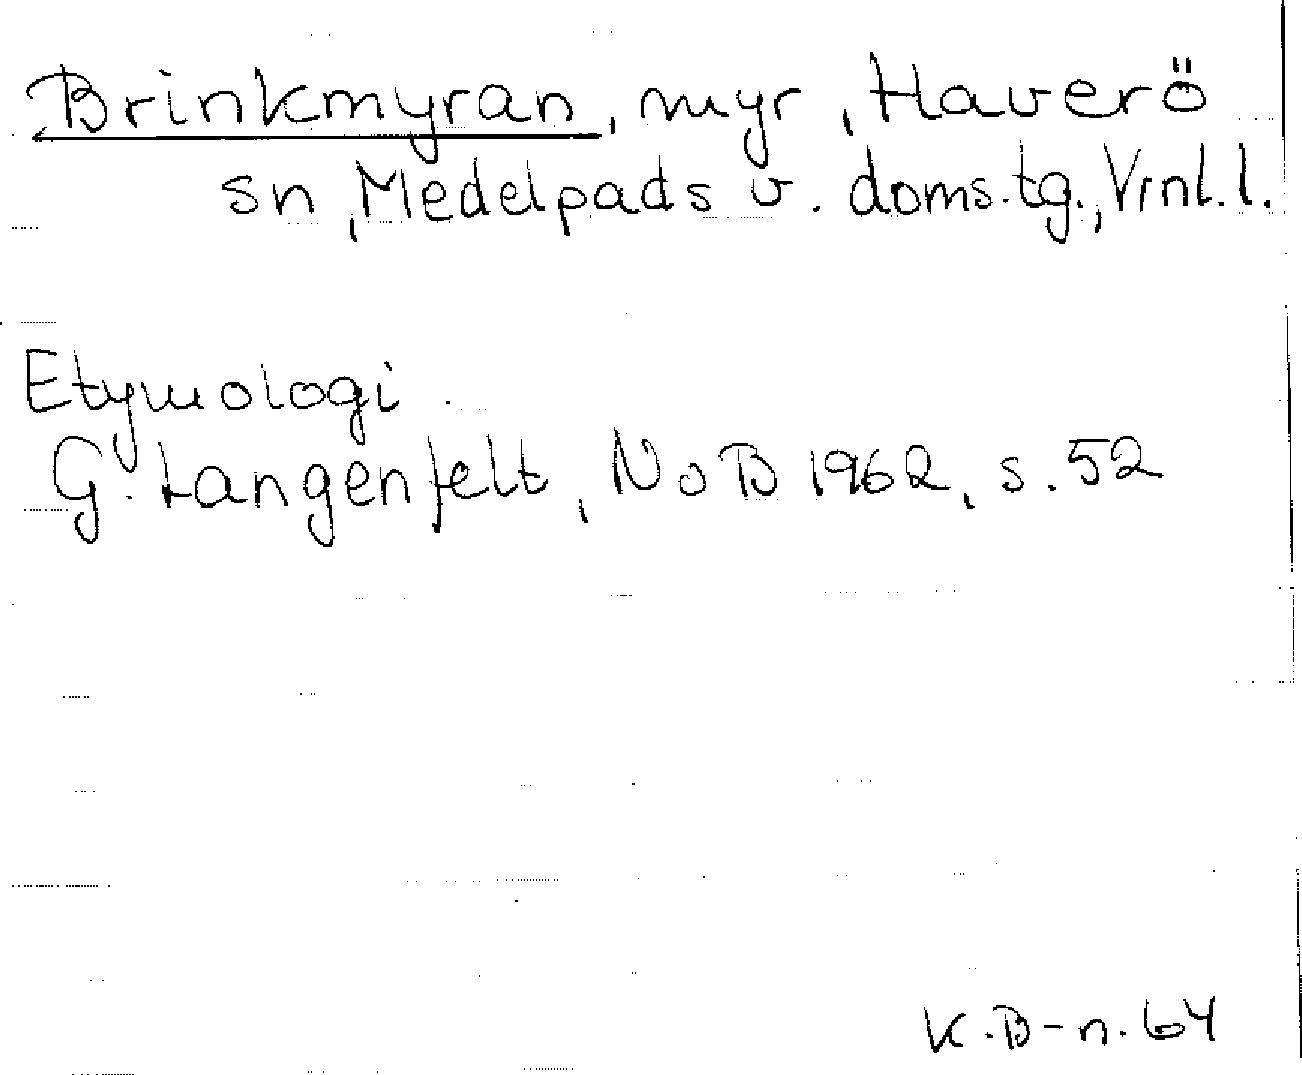 Brinkmyran, myr, Haverö
sn, Medelpads v. doms.tg., Vnl.l.
Etymologi
G. Langenfelt, NoB 1962, s. 52
K.B-n. 64